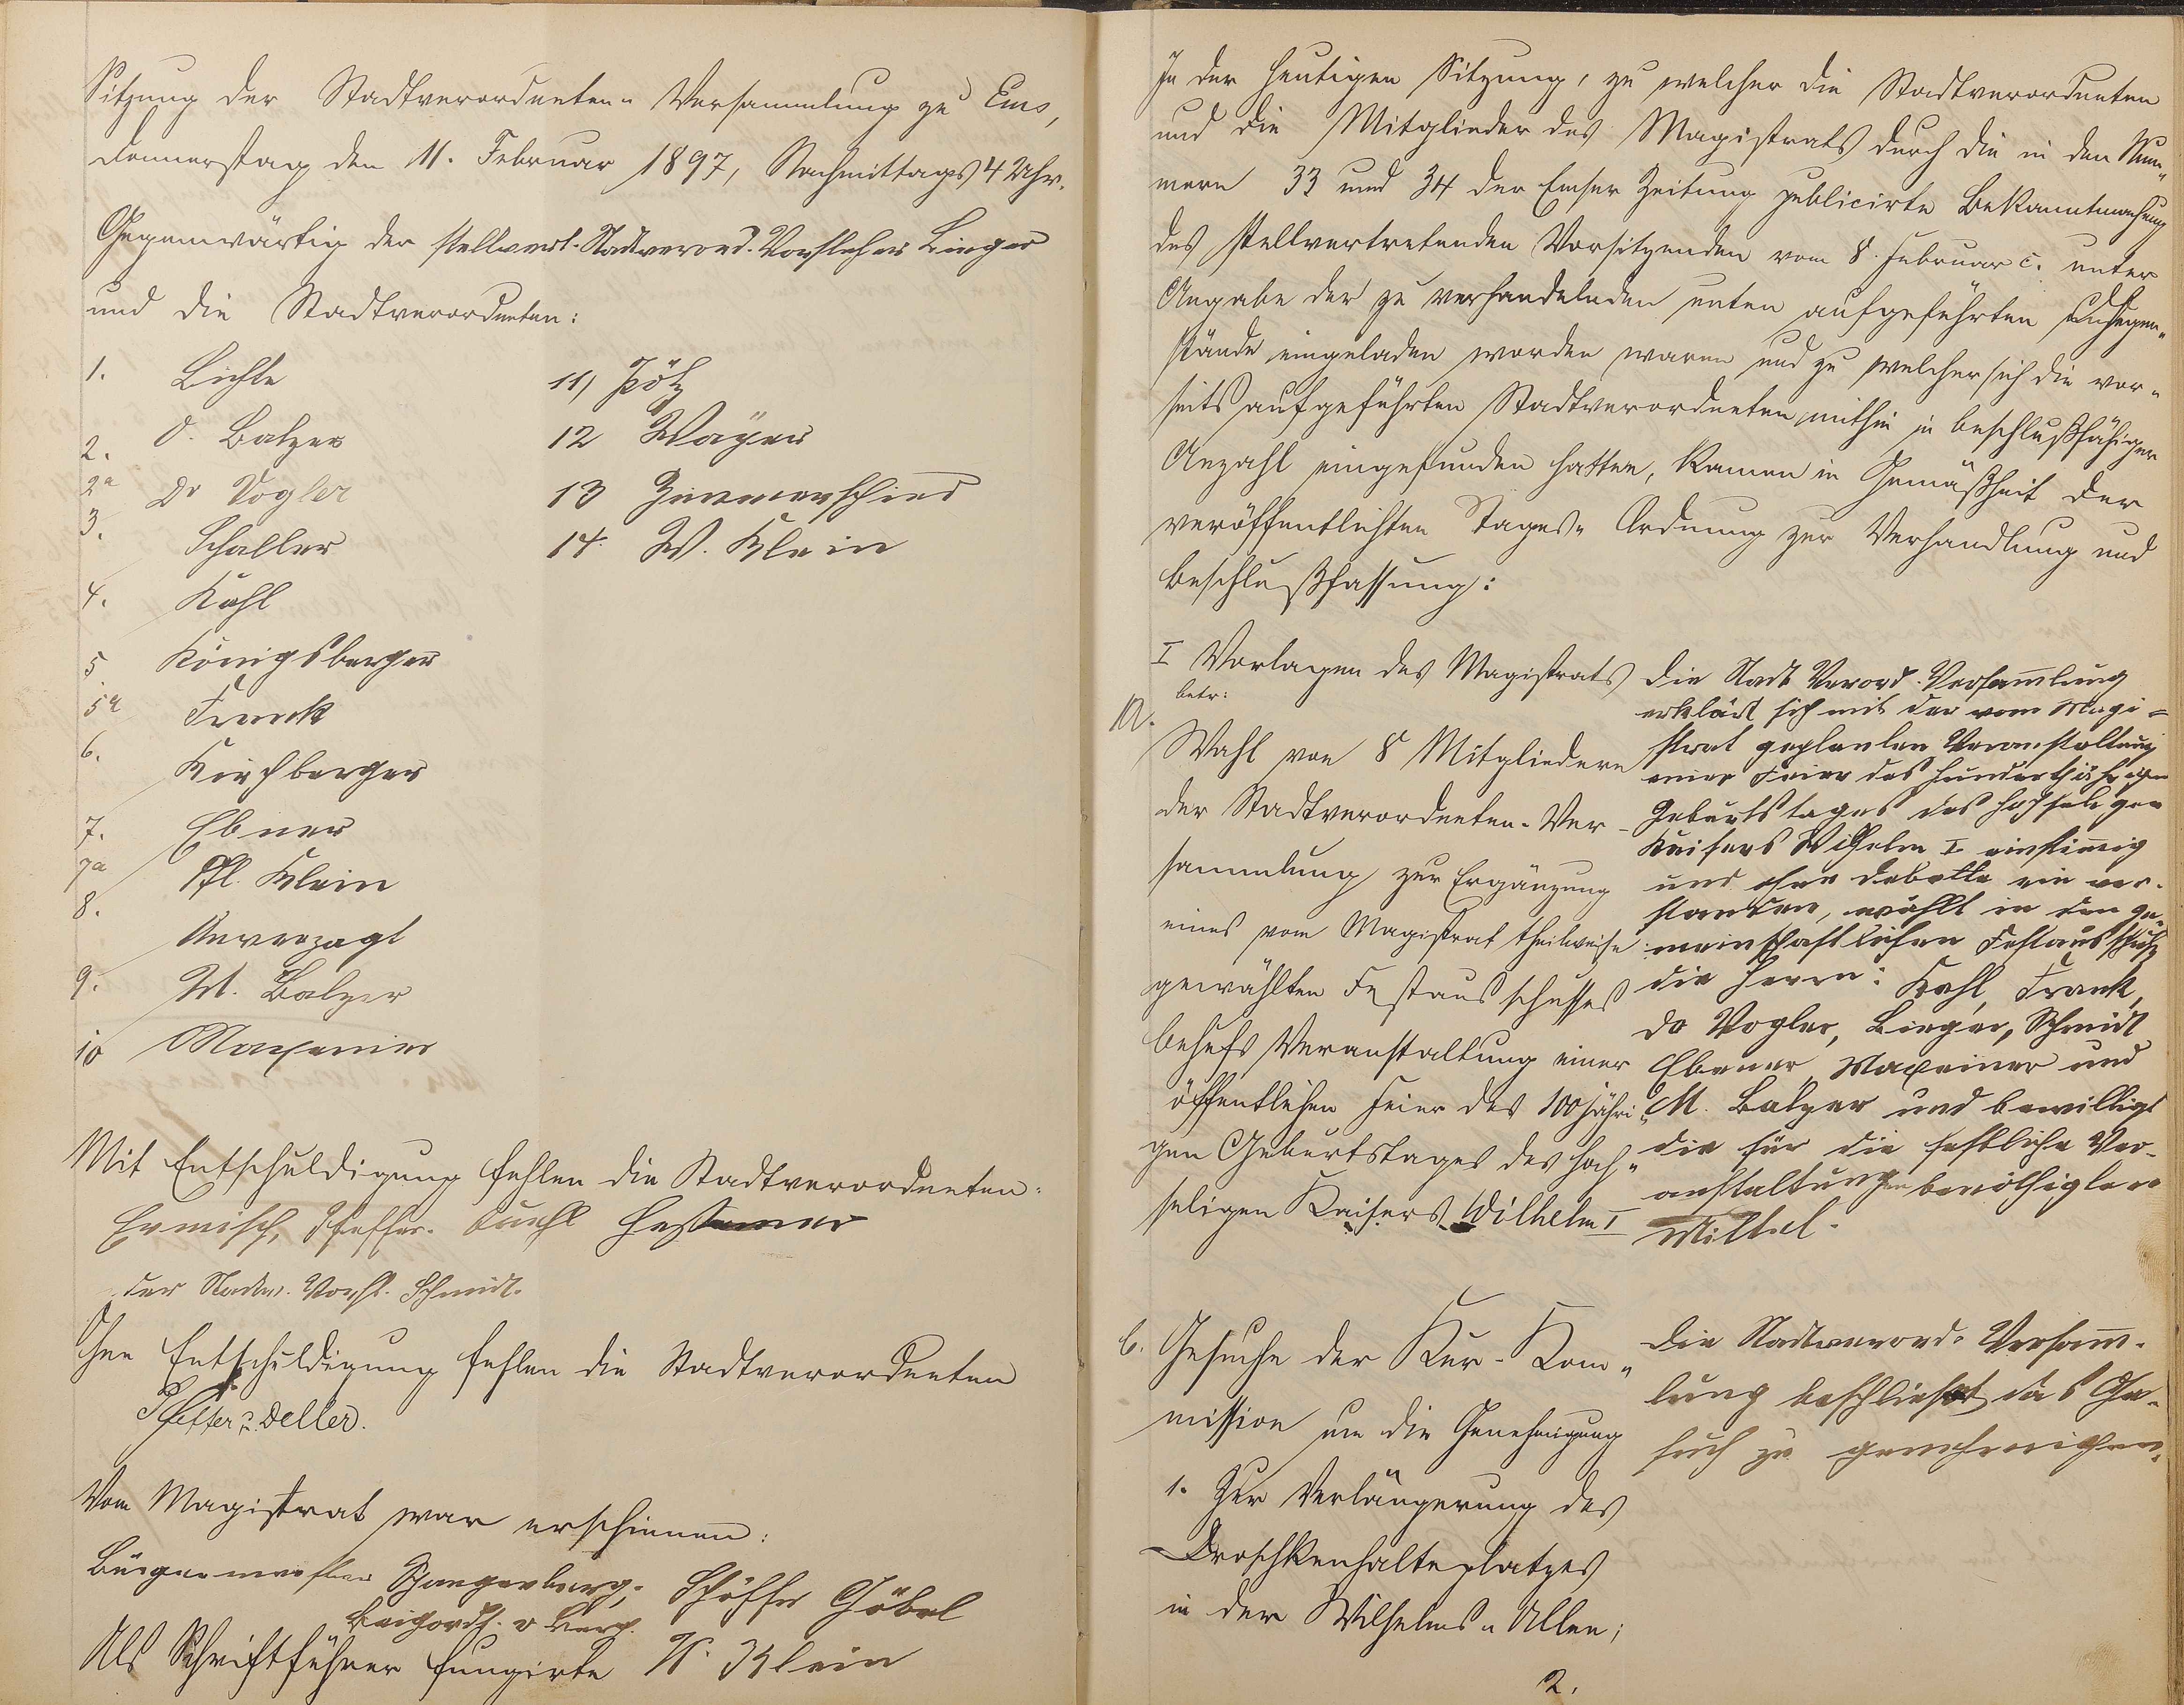 Sitzung der Stadtverordneten-Versammlung zu Ems,
Donnerstag den 11. Februar 1897, Nachmittags 4 Uhr.
Gegenwärtig der stellvert. Stadtverord. Vorsteher Linger
und die Stadtverordneten:
1. Lichte
2. O. Balzer
2a Dr Vogler
3. Schaller
4. Kahl
5 Königsberger
5a Franck
6. Kirchberger
7. Ebner
7a Ph. Klein
8. Unverzagt
9. M. Balzer
10 Maxeiner
11) Pötz
12 Wäger
13 Zimmerschied
14. W. Klein
Mit Entschuldigung fehlen die Stadtverordneten:
Ermisch,
der Stadtv. Vorst. Schmidt.
Ohne Entschuldigung fehlen die Stadtverordneten
Pfeffer u. Deller.
Vom Magistrat war erschienen:
Bürgermeister Spangenberg, Schöffe Göbel
Beigordt. v Berg.
Als Schriftführer fungirte W. Klein
In der heutigen Sitzung, zu welcher die Stadtverordneten
und die Mitglieder des Magistrats durch die in den Num-
mern 33 und 34 der Emser Zeitung publicirte Bekanntmachung
des stellvertretenden Vorsitzenden vom 8. Februar c. unter
Angabe der zu verhandelnden unten aufgeführten Gegen-
stände eingeladen worden waren und zu welcher sich die vor-
seits aufgeführten Stadtverordneten mithin in beschlußfähiger
Anzahl eingefunden hatten, kamen in Gemäßheit der
veröffentlichten Tages-Ordnung zur Verhandlung und
Beschlußfassung:
I Vorlagen des Magistrats
betr:
a.
Wahl von 8 Mitgliedern
der Stadtverordneten-Ver-
sammlung zur Ergänzung
eines vom Magistrat theilweise
gewählten Festausschusses
behufs Veranstaltung einer
öffentlichen Feier des 100 jähri-
gen Geburtstages des hoch-
seligen Kaisers Wilhelm I
Die Stadt Verord. Versammlung
erklärt sich mit der vom Magi-
strat geplanten Veranstaltung
einer Feier des hundertjährigen
Geburtstages des hochseligen
Kaisers Wilhelm I einstimmig
und ohne Debatte ein ver-
standen, wählt in den ge-
meinschaftlichen Festausschuß
die Herrn: Kahl, Frank,
Dr Vogler, Linger, Schmidt
Ebener, Maxeiner und
M. Balzer und bewilligt
die für die festliche Ver-
anstaltungen benöthigten
Mittel.
b. Gesuche der Kur-Kom-
mission um die Genehmigung
1. Zur Verlängerung des
Droschkenhalteplatzes
in der Wilhelms-Allee;
Die Stadtverord. Versamm-
lung beschließt das Ge-
such zu genehmigen.
2.